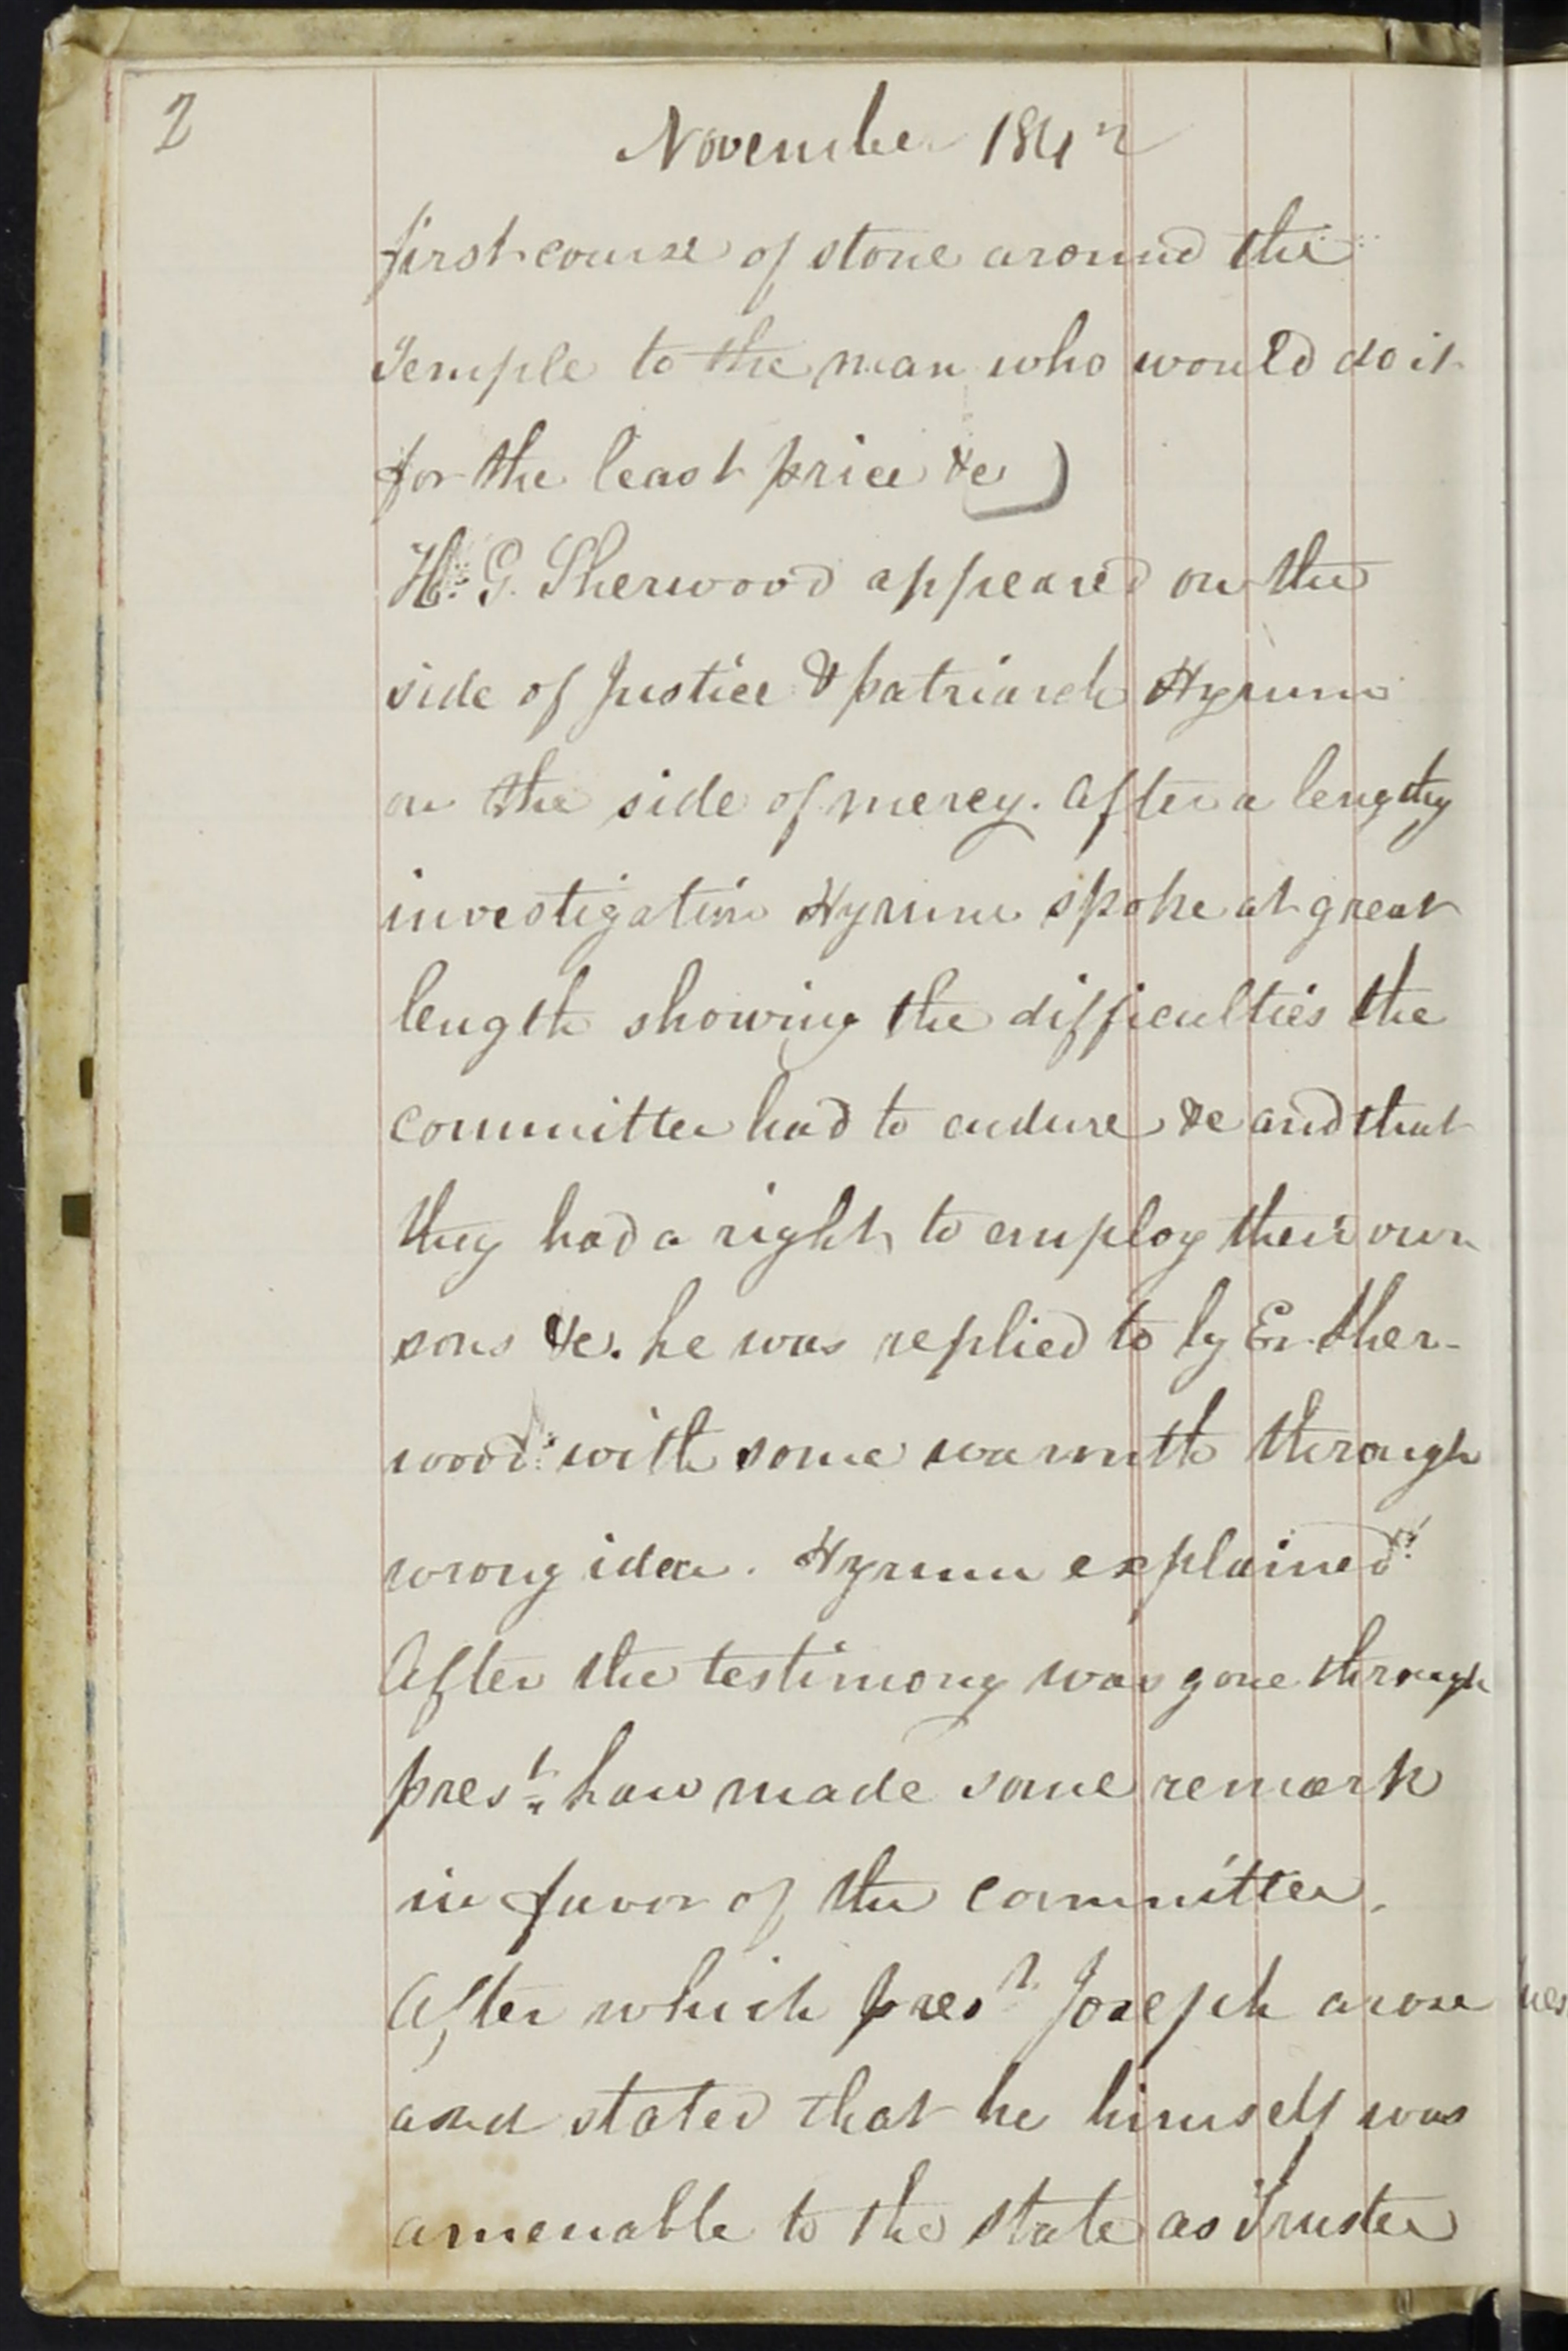 2
November 1842
first course of stone around the
Temple to the man who would do it
for the least price &c)
H. G. Sherwood appeared on the
side of Justice & patriarch Hyrum
on the side of mercy. After a lengthy
investigation Hyrum spoke at great
length showing the difficulties the
committee had to endure &c and that
they had a right to employ their own
sons &c. he was replied to by Er. Sher-
wood with some warmth through
wrong idea. Hyrum explained
After the testimony was gone through
prest. Law made some remark
in favor of the committee.
After which prest. Joseph arose
and stated that he himself was
amenable to the state as Trustee